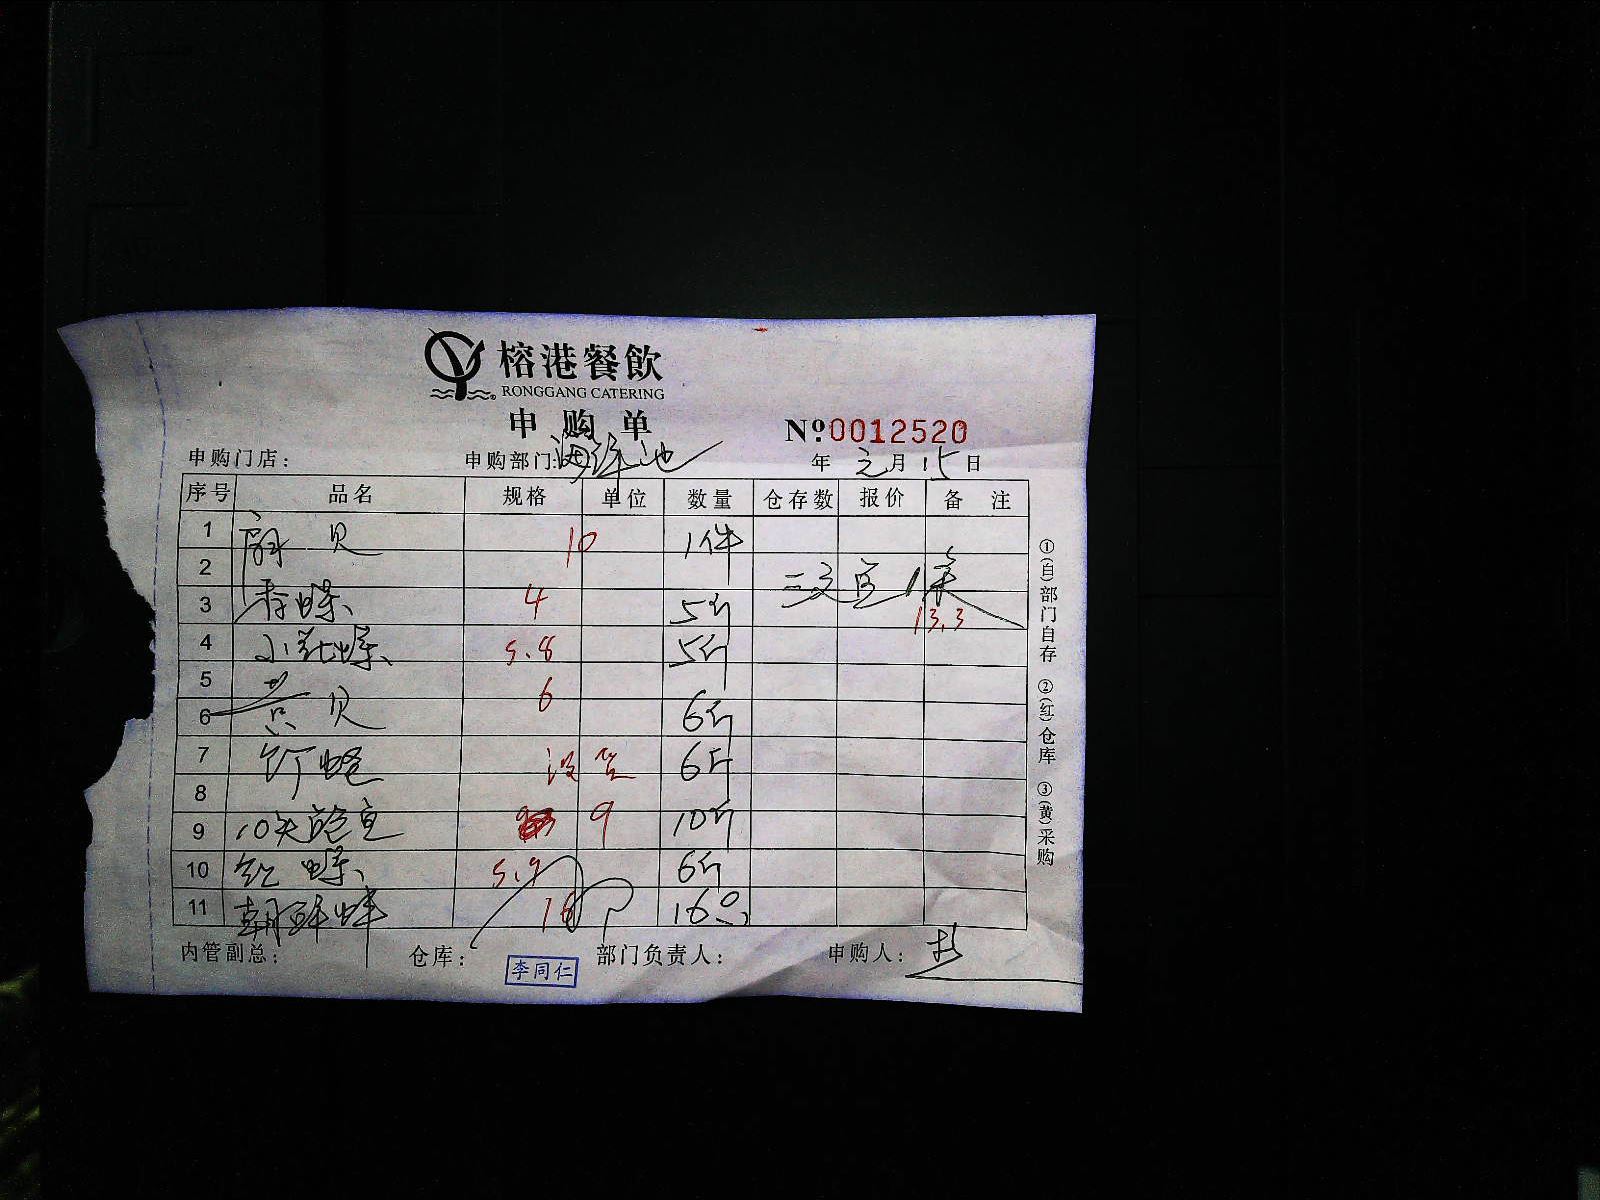 榕港餐飲
RONGGANG CATERING
申购单
№0012520
申购门店： 申购部门：海鲜池 年 元月 15日
序号 品名 规格 单位 数量 仓存数 报价 备注
1 扇贝 10 1件
2
3 香螺 4 5斤 13.3
4 小花螺 5.8 5斤
5 6
6 贝 6斤
7 没 6斤
8
9 10头鲍鱼 9 10斤
10 红螺 5.9 6斤
11 朝鲜蚌 16 16只
①(白)部门自存 ②(红)仓库 ③(黄)采购
内管副总： 仓库： 李同仁 部门负责人： 申购人：